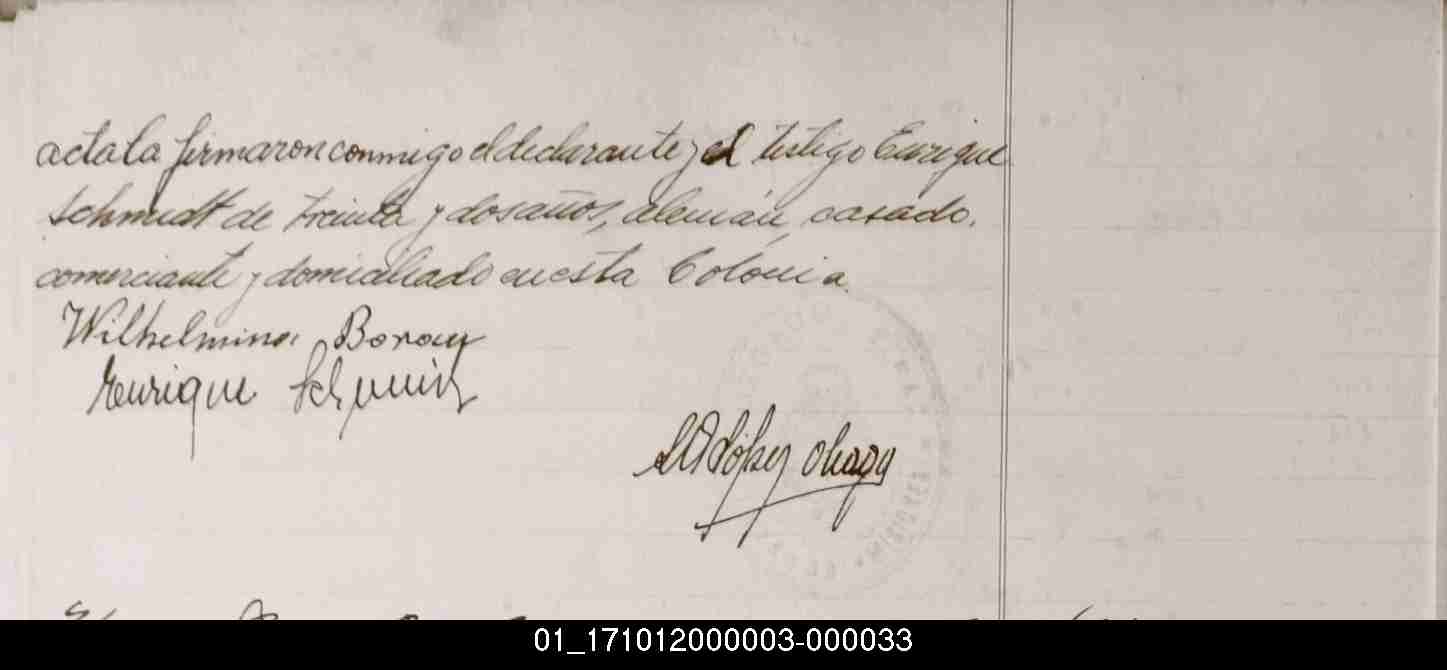 acta la firmaron conmigo el declarante y el testigo Enrique
Schmidt de treinta y dos años, alemán, casado,
comerciante y domiciliado en esta Colónia.
Wilhelmina
Enrique Schmidt
López
MISIONES
01_171012000003-000033